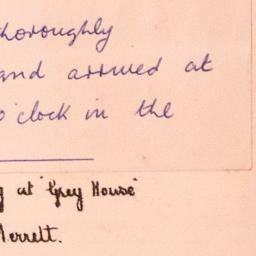 thoroughly
and arrived at
o'clock in the
at 'Grey House'
Merrett.